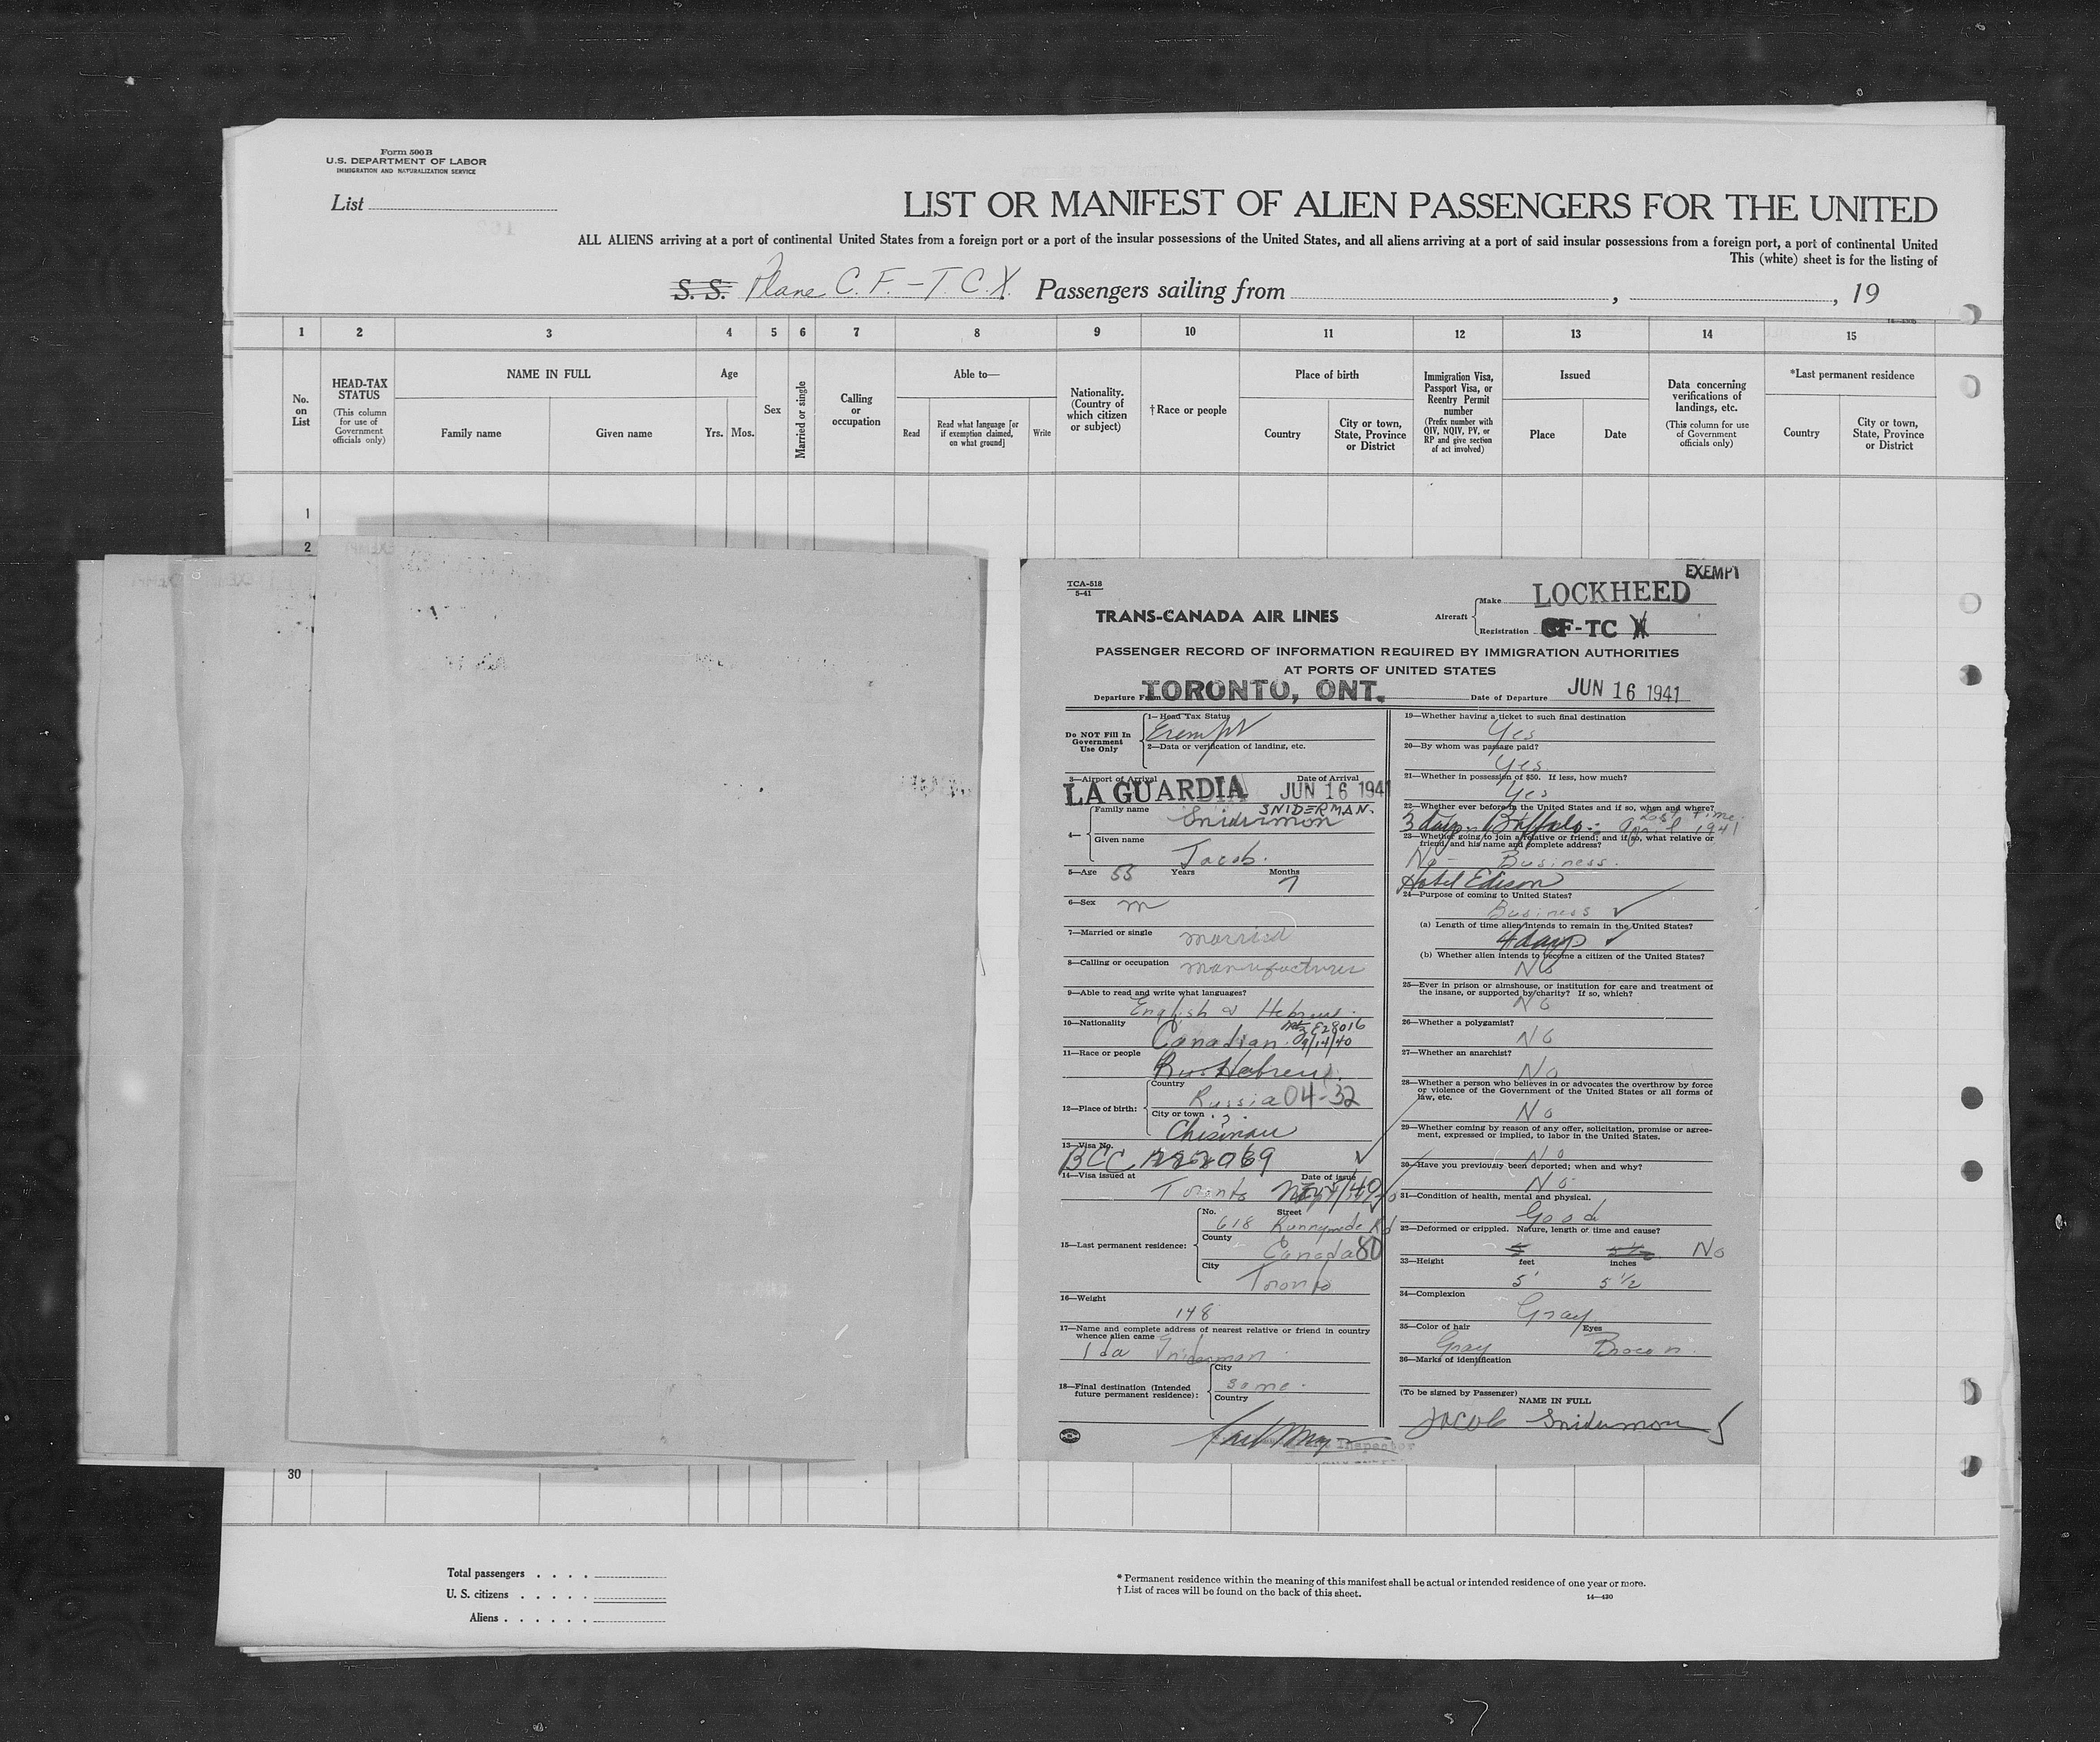 Form 500 B
U.S. DEPARTMENT OF LABOR
IMMIGRATION AND NATURALIZATION SERVICE
List
LIST OR MANIFEST OF ALIEN PASSENGERS FOR THE UNITED
ALL ALIENS arriving at a port of continental United States from a foreign port or a port of the insular possessions of the United States, and all aliens arriving at a port of said insular possessions from a foreign port, a port of continental United
This (white) sheet is for the listing of
S. S. Plane C.F.-T.C.X. Passengers sailing from , , 19
1 2 3 4 5 6 7 8 9 10 11 12 13 14 15
No. on List
HEAD-TAX STATUS (This column for use of Government officials only)
NAME IN FULL
Family name
Given name
Age
Yrs. Mos.
Sex
Married or single
Calling or occupation
Able to—
Read
Read what language [or if exemption claimed, on what ground]
Write
Nationality. (Country of which citizen or subject)
†Race or people
Place of birth
Country
City or town, State, Province or District
Immigration Visa, Passport Visa, or Reentry Permit number (Prefix number with QIV, NQIV, PV, or RP and give section of act involved)
Issued
Place
Date
Data concerning verifications of landings, etc. (This column for use of Government officials only)
*Last permanent residence
Country
City or town, State, Province or District
1
2
TCA-518
5-41
EXEMPT
TRANS-CANADA AIR LINES
Aircraft
Make LOCKHEED
Registration CF-TC X
PASSENGER RECORD OF INFORMATION REQUIRED BY IMMIGRATION AUTHORITIES
AT PORTS OF UNITED STATES
Departure From TORONTO, ONT. Date of Departure JUN 16 1941
Do NOT Fill In Government Use Only
1—Head Tax Status
Exempt
2—Data or verification of landing, etc.
3—Airport of Arrival Date of Arrival
LA GUARDIA JUN 16 1941
4—
Family name SNIDERMAN.
Sniderman
Given name
Jacob.
5—Age 55 Years Months 7
6—Sex m
7—Married or single married
8—Calling or occupation manufacturer
9—Able to read and write what languages?
English & Hebrew.
10—Nationality
Canadian. 9/14/40
11—Race or people
Hebrew.
12—Place of birth:
Country
Russia 04-32
City or town
Chisinau
13—Visa No.
BCC
14—Visa issued at Date of issue
Toronto
15—Last permanent residence:
No. Street
618 Runnymede Rd
County
Canada 80
City
Toronto
16—Weight
148
17—Name and complete address of nearest relative or friend in country
whence alien came
Ida Sniderman
18—Final destination (Intended
future permanent residence):
City
same.
Country
Inspector
19—Whether having a ticket to such final destination
Yes
20—By whom was passage paid?
Yes.
21—Whether in possession of $50. If less, how much?
Yes
22—Whether ever before in the United States and if so, when and where?
3 days. Buffalo. Last time April 1941
23—Whether going to join a relative or friend; and if so, what relative or
friend and his name and complete address?
No - Business.
Hotel Edison
24—Purpose of coming to United States?
Business ✓
(a) Length of time alien intends to remain in the United States?
4 days ✓
(b) Whether alien intends to become a citizen of the United States?
No
25—Ever in prison or almshouse, or institution for care and treatment of
the insane, or supported by charity? If so, which?
No
26—Whether a polygamist?
No
27—Whether an anarchist?
No
28—Whether a person who believes in or advocates the overthrow by force
or violence of the Government of the United States or all forms of
law, etc.
No
29—Whether coming by reason of any offer, solicitation, promise or agree-
ment, expressed or implied, to labor in the United States.
No
30—Have you previously been deported; when and why?
No
31—Condition of health, mental and physical.
Good
32—Deformed or crippled. Nature, length of time and cause?
No
33—Height feet inches
5' 5 1/2
34—Complexion
Gray
35—Color of hair Eyes
Gray Brown.
36—Marks of identification
(To be signed by Passenger)
NAME IN FULL
Jacob Sniderman
30
Total passengers
U. S. citizens
Aliens
* Permanent residence within the meaning of this manifest shall be actual or intended residence of one year or more.
† List of races will be found on the back of this sheet.
14—430